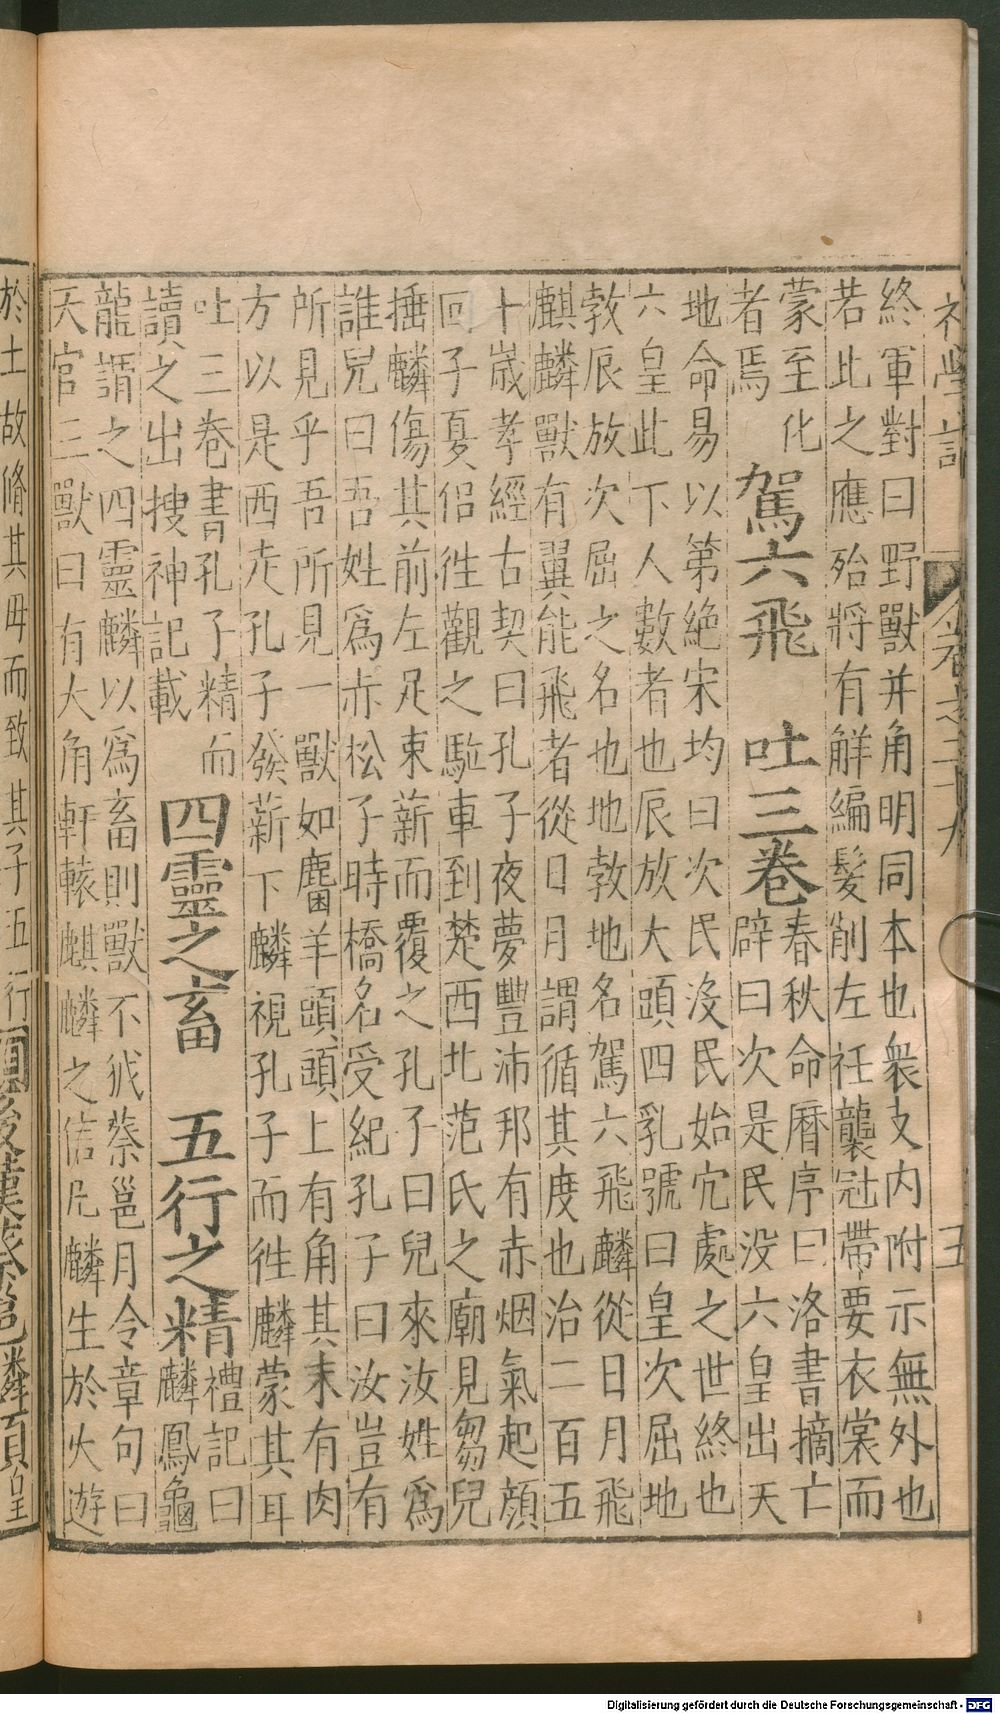 初學記 卷之二十九 五
終軍對曰野獸并角明同本也衆支内附示無外也
若此之應殆將有解編髮削左衽襲冠帶要衣裳而
蒙至化
者焉
駕六飛 吐三卷
春秋命曆序曰洛書摘亡
辟曰次是民没六皇出天
地命易以第絶宋均曰次民没民始穴處之世終也
六皇此下人數者也辰放大頭四乳號曰皇次屈地
敦辰放次屈之名也地敦地名駕六飛麟從日月飛
麒麟獸有翼能飛者從日月謂循其度也治二百五
十歲孝經古契曰孔子夜夢豐沛邦有赤烟氣起顔
回子夏侣往觀之駈車到楚西北范氏之廟見芻兒
捶麟傷其前左足束薪而覆之孔子曰兒來汝姓爲
誰兒曰吾姓爲赤松子時橋名受紀孔子曰汝豈有
所見乎吾所見一獸如麏羊頭頭上有角其末有肉
方以是西走孔子發薪下麟視孔子而往麟蒙其耳
吐三卷書孔子精而
讀之出搜神記載
四靈之畜 五行之精
禮記曰
麟鳳龜
龍謂之四靈麟以爲畜則獸不狘蔡邕月令章句曰
天官三獸曰有大角軒轅麒麟之信凡麟生於火遊
於土故脩其毋而致其子五行 後漢蔡邕麟頌皇
Digitalisierung gefördert durch die Deutsche Forschungsgemeinschaft - DFG